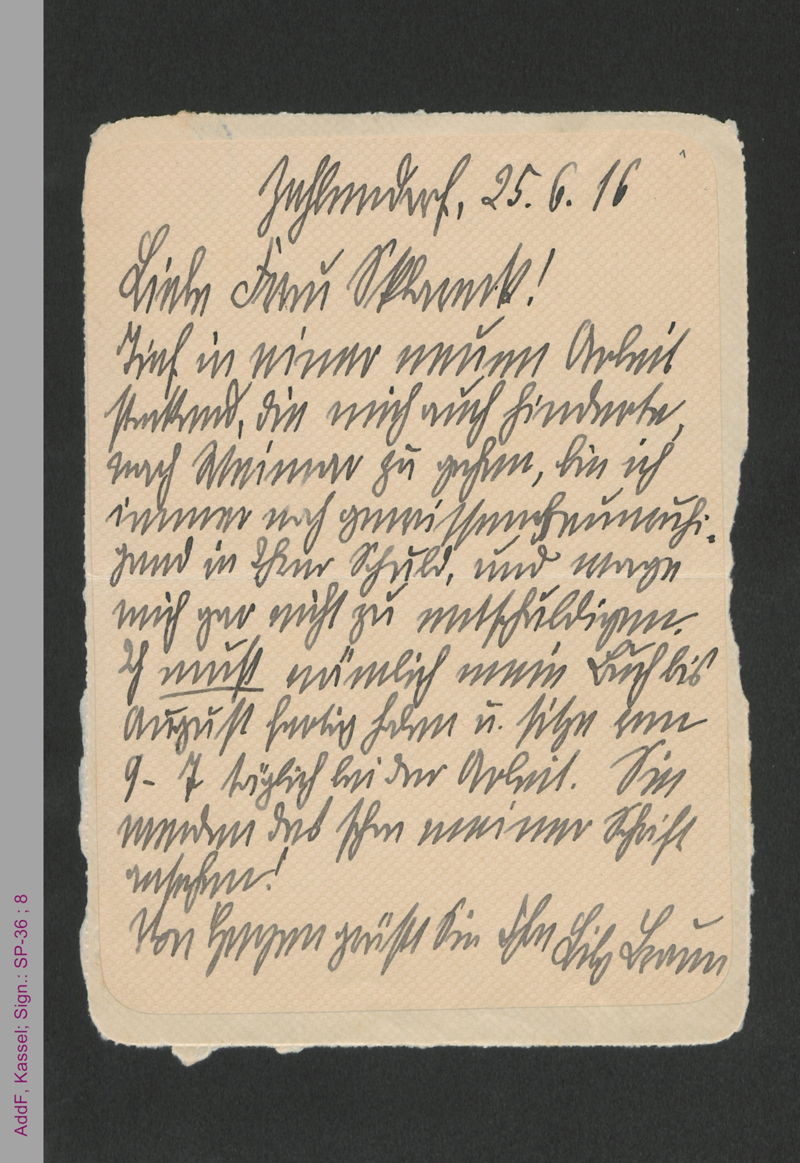 Zehlendorf, 25. 6. 16
Liebe Frau Sklarek!
Tief in einer neuen Arbeit
steckend, die mich auch hinderte,
nach Weimar zu gehen, bin ich
immer noch gewissenbeunruhi-
gend in Ihrer Schuld, und mage
mich gar nicht zu entschuldigen.
Ich muß nämlich mein Buch bis
August fertig haben u. sitze von
9 – 7 täglich bei der Arbeit. Sie
werden das schon meiner Schrift
ansehen!
Von Herzen grüßt Sie Ihre Lily Braun
AddF, Kassel; Sign.: SP-36 ; 8